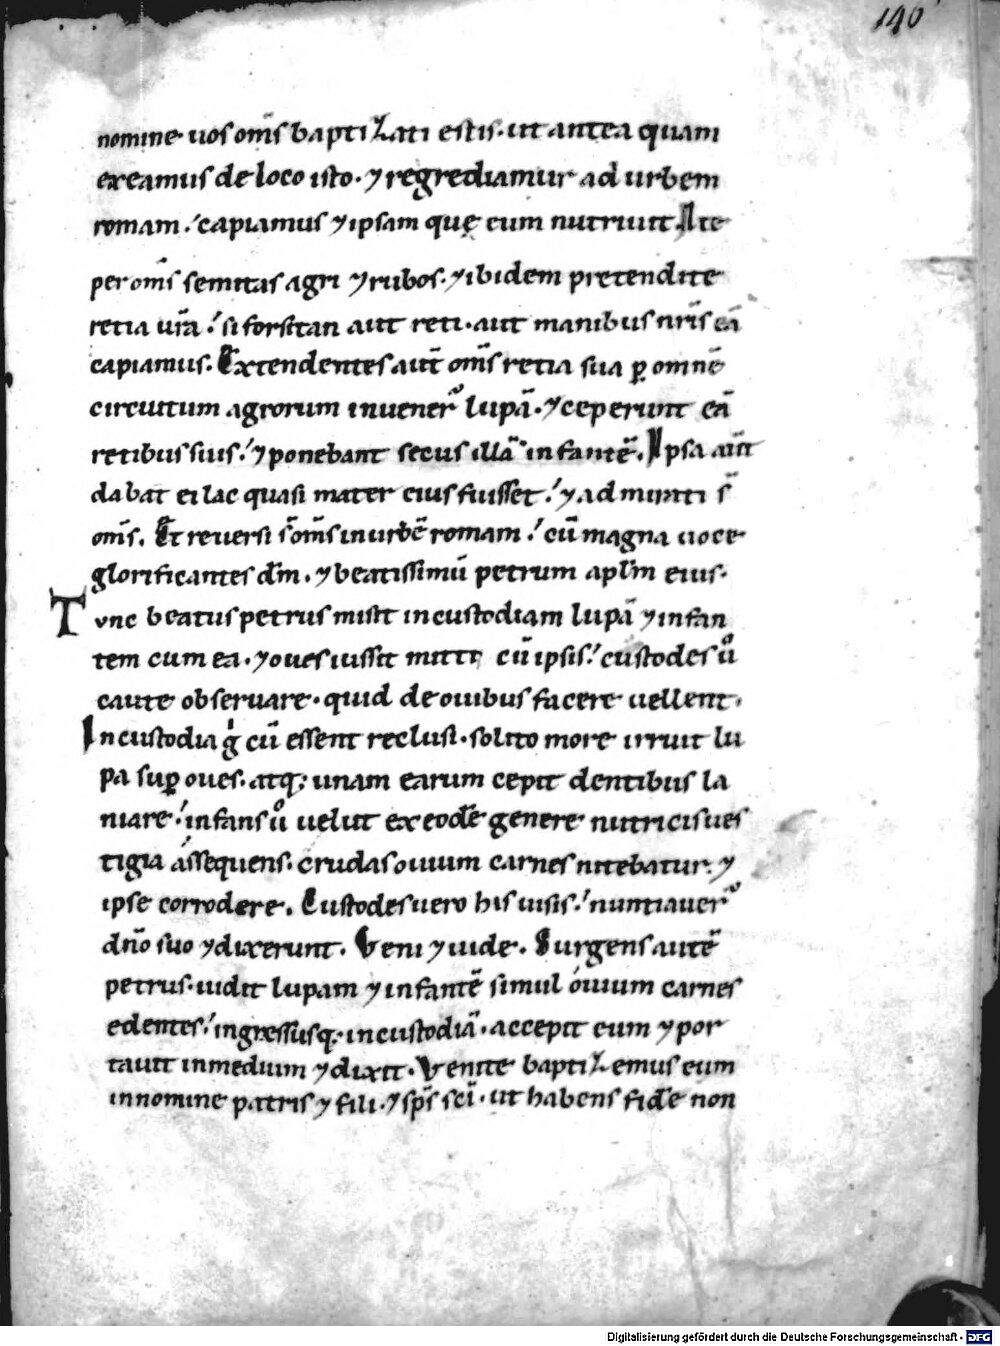 140
nomine uos om̅s baptizati estis. ut antea quam
exeamus de loco isto. ⁊ regrediamur ad urbem
romam. capiamus ⁊ ipsam quę eum nutriuit. Ite
per om̅s semitas agri ⁊ rubos. ⁊ ibidem pretendite
retia ur̅a. si forsitan aut reti. aut manibus nr̅is ea̅
capiamus. Extendentes aut̅ om̅s retia sua ꝑ omne̅
circuitum agrorum inuener̅ lupa̅. ⁊ ceperunt ea̅
retibus suis. ⁊ ponebant secus illa̅ infante̅. Ipsa aut̅
dabat ei lac quasi mater eius fuisset. ⁊ admirati s̅
om̅s. Et reuersi s̅ om̅s in urbe̅ romam. cu̅ magna uoce
glorificantes dm̅. ⁊ beatissimu̅ petrum apl̅m eius.
Tunc beatus petrus misit in custodiam lupa̅ ⁊ infan
tem cum ea. ⁊ oues iussit mitti cu̅ ipsis. custodes uͦ
caute obseruare. quid de ouibus facere uellent.
In custodia gͥ cu̅ essent reclusi. solito more irruit lu
pa suꝑ oues. atq; unam earum cepit dentibus la
niare. infans uͦ uelut ex eode̅ genere nutricis ues
tigia assequens. crudas ouium carnes nitebatur. ⁊
ipse corrodere. Custodes uero his uisis. nuntiauer̅
dn̅o suo ⁊ dixerunt. Veni ⁊ uide. Surgens aute̅
petrus. uidit lupam ⁊ infante̅ simul ouium carnes
edentes. ingressusq; in custodia̅. accepit eum ⁊ por
tauit in medium ⁊ dixit. Venite baptizemus eum
in nomine patris ⁊ filii. ⁊ sp̅s sc̅i. ut habens fide̅ non
Digitalisierung gefördert durch die Deutsche Forschungsgemeinschaft - DFG